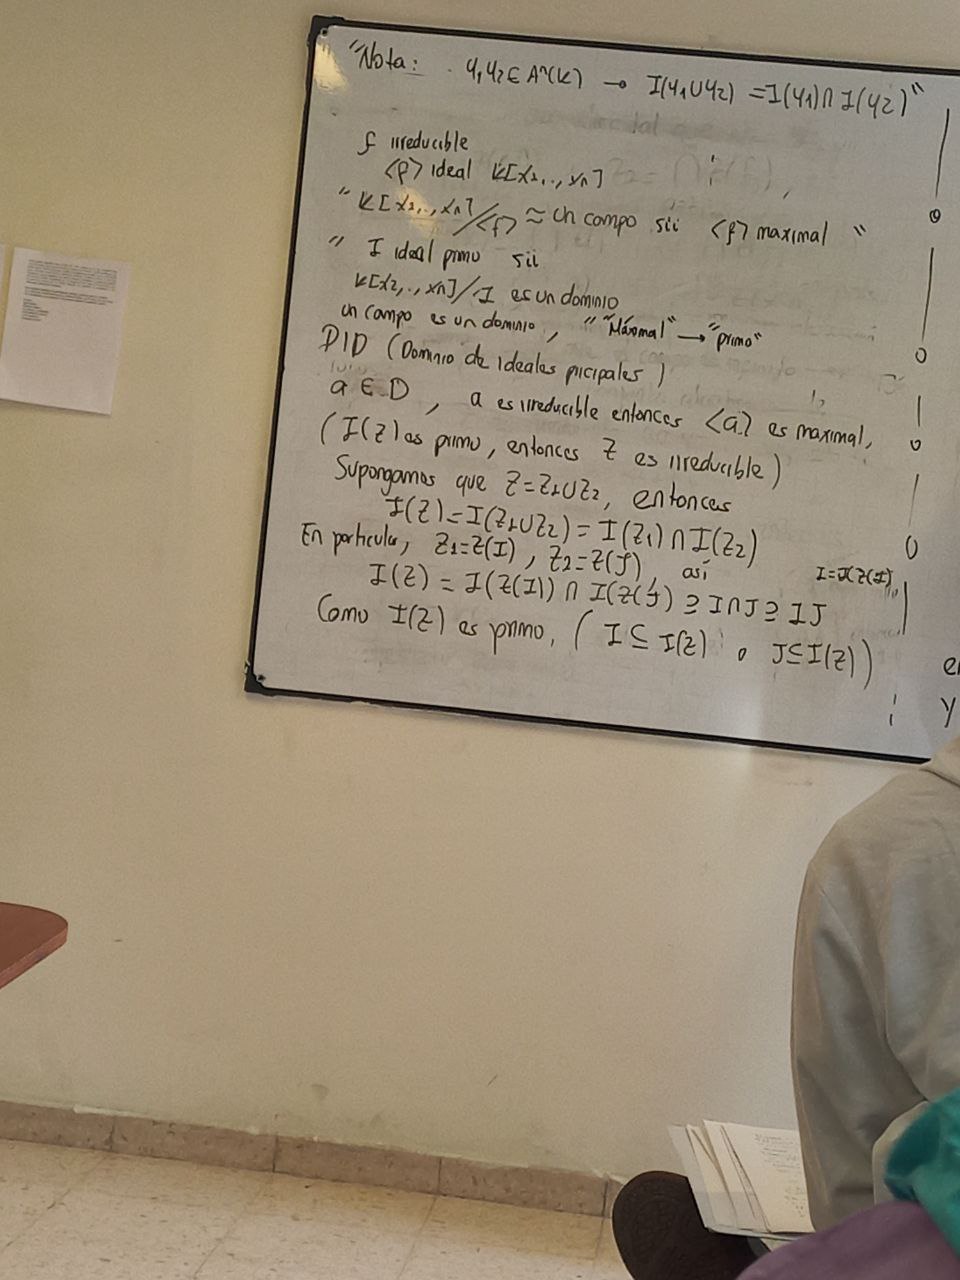 "Nota: . Y₁Y₂ ∈ Aⁿ(K) → I(Y₁∪Y₂) = I(Y₁)∩ I(Y₂)"
f irreducible
<f> ideal K[x₁,..,xₙ]
" K[x₁,..,xₙ]/<f> ≈ Un campo sii <f> maximal "
" I ideal primo sii
K[x₁,..,xₙ]/I es un dominio
un campo es un dominio, " "Máximal" → "primo"
DID (Dominio de ideales picipales)
a ∈ D , a es irreducible entonces <a> es maximal,
(I(Z) es primo, entonces Z es irreducible)
Supongamos que Z=Z₁∪Z₂, entonces
I(Z)=I(Z₁∪Z₂) = I(Z₁) ∩ I(Z₂)
En particular, Z₁=Z(I) , Z₂=Z(J), así
I=I(Z(I))
I(Z) = I(Z(I)) ∩ I(Z(J)) ⊇ I∩J ⊇ IJ
Como I(Z) es primo, ( I ⊆ I(Z) o J⊆I(Z))
y